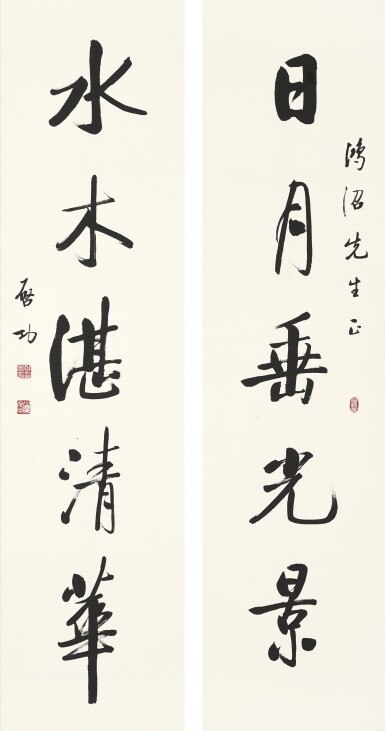 鴻沼先生正
日月垂光景
水木湛清華
啓功